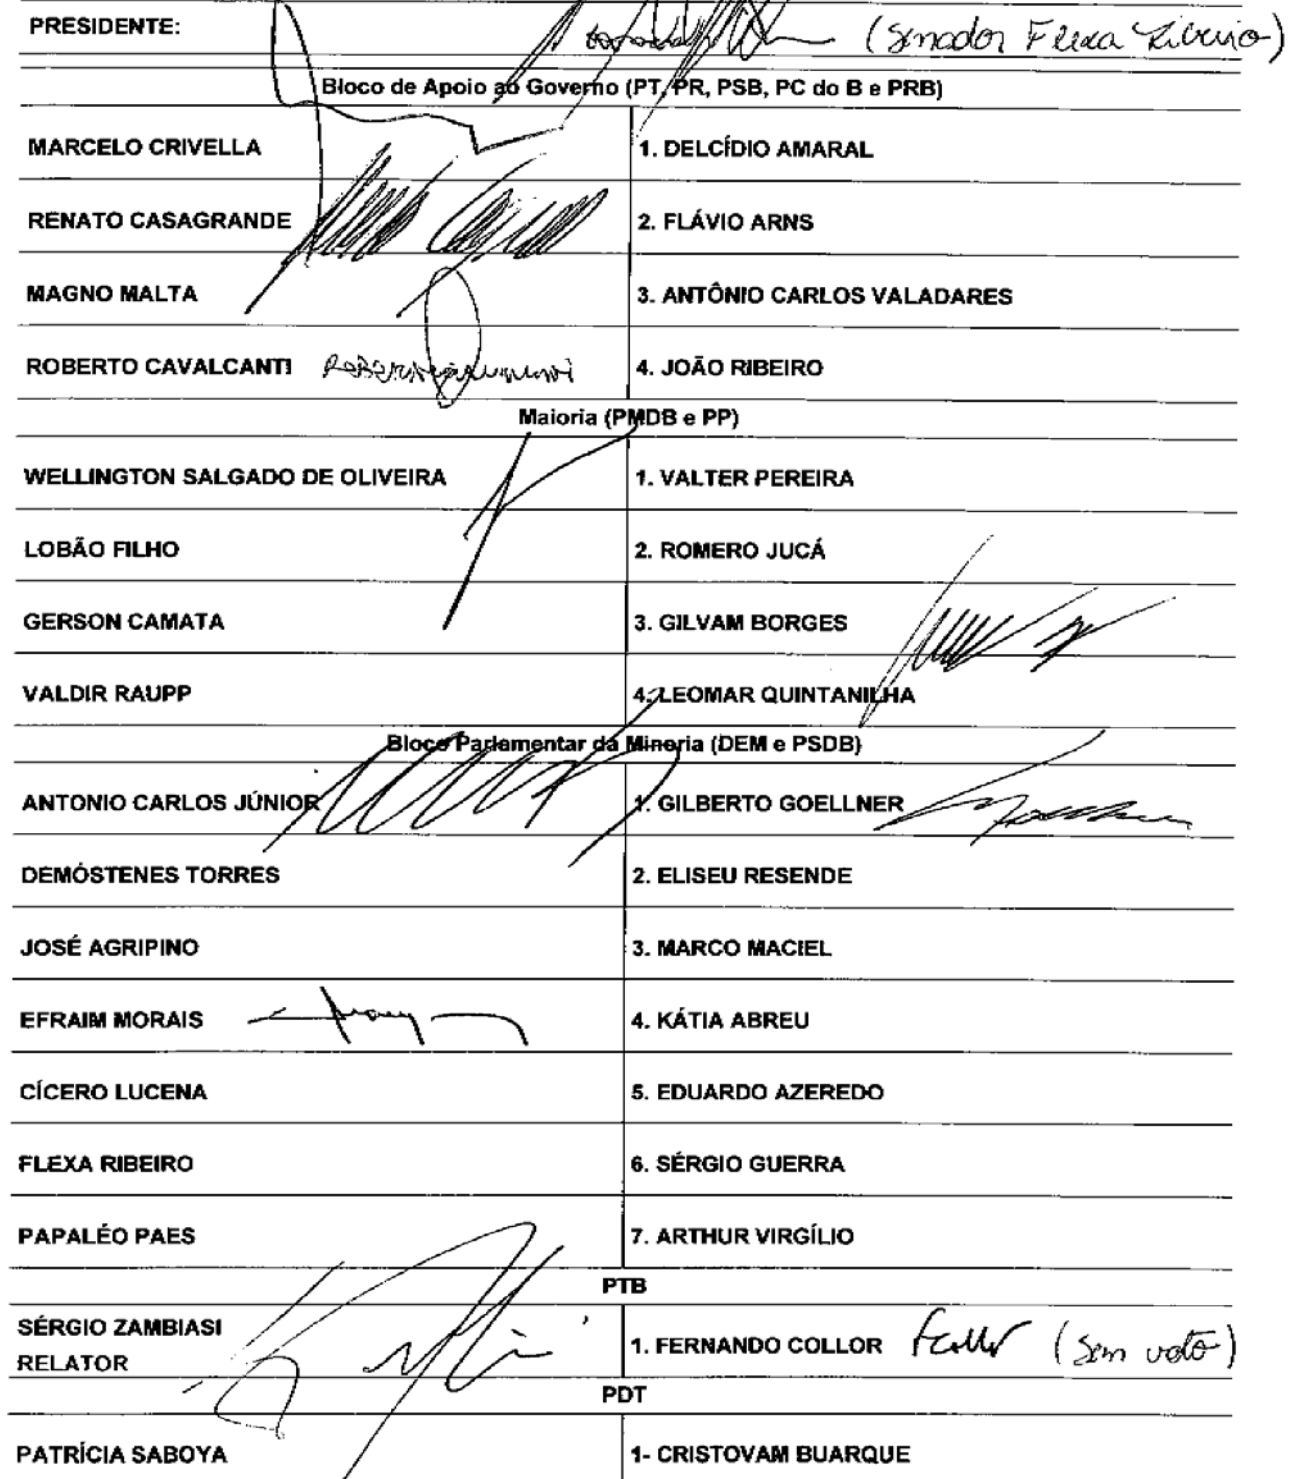 PRESIDENTE: (Senador Flexa Ribeiro)
Bloco de Apoio ao Governo (PT, PR, PSB, PC do B e PRB)
MARCELO CRIVELLA 1. DELCÍDIO AMARAL
RENATO CASAGRANDE 2. FLÁVIO ARNS
MAGNO MALTA 3. ANTÔNIO CARLOS VALADARES
ROBERTO CAVALCANTI 4. JOÃO RIBEIRO
Maioria (PMDB e PP)
WELLINGTON SALGADO DE OLIVEIRA 1. VALTER PEREIRA
LOBÃO FILHO 2. ROMERO JUCÁ
GERSON CAMATA 3. GILVAM BORGES
VALDIR RAUPP 4. LEOMAR QUINTANILHA
Bloco Parlamentar da Minoria (DEM e PSDB)
ANTONIO CARLOS JÚNIOR 1. GILBERTO GOELLNER
DEMÓSTENES TORRES 2. ELISEU RESENDE
JOSÉ AGRIPINO 3. MARCO MACIEL
EFRAIM MORAIS 4. KÁTIA ABREU
CÍCERO LUCENA 5. EDUARDO AZEREDO
FLEXA RIBEIRO 6. SÉRGIO GUERRA
PAPALÉO PAES 7. ARTHUR VIRGÍLIO
PTB
SÉRGIO ZAMBIASI
RELATOR 1. FERNANDO COLLOR (sem voto)
PDT
PATRÍCIA SABOYA 1- CRISTOVAM BUARQUE